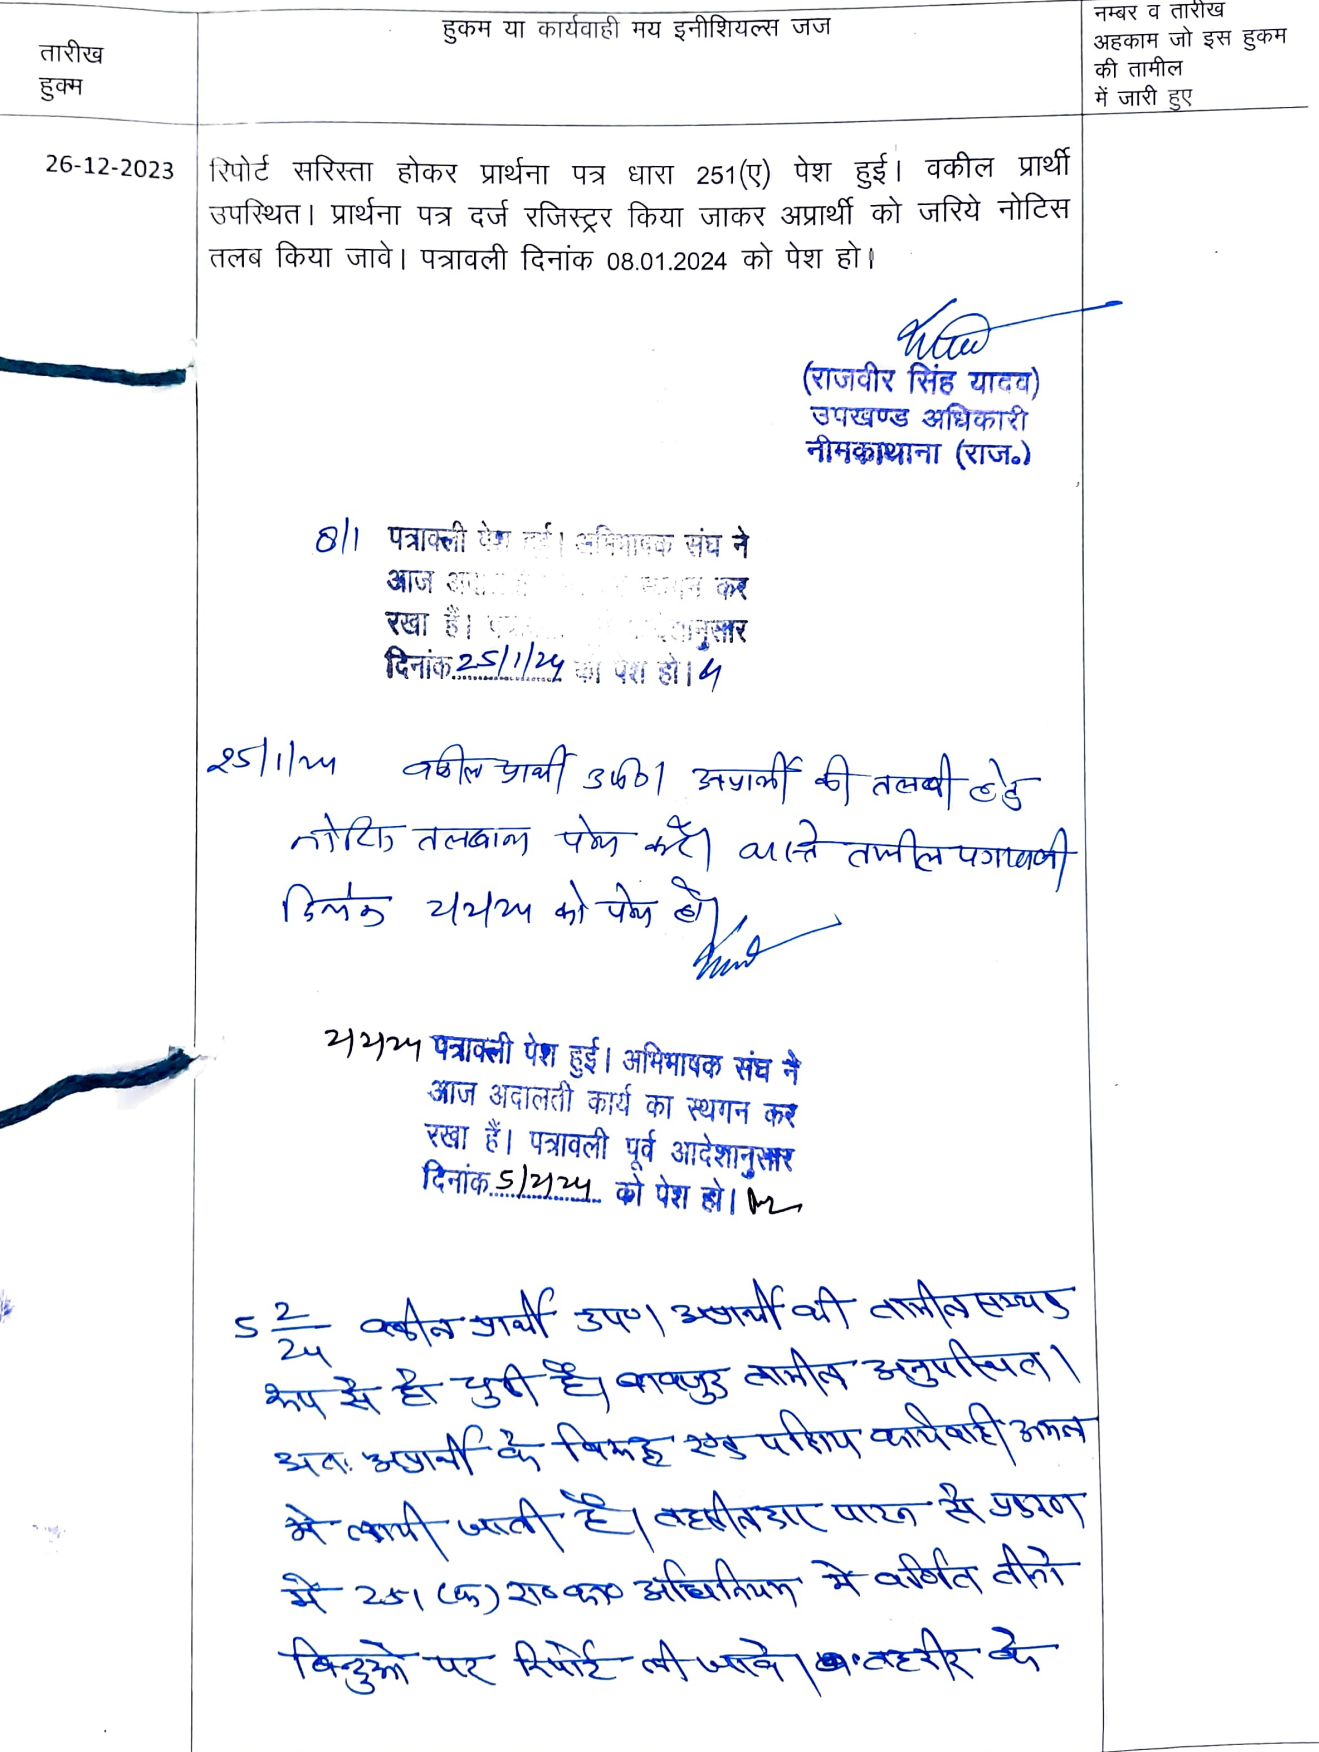 तारीख
हुक्म
हुकम या कार्यवाही मय इनीशियल्स जज
नम्बर व तारीख
अहकाम जो इस हुकम
की तामील
में जारी हुए
26-12-2023
रिपोर्ट सरिस्ता होकर प्रार्थना पत्र धारा 251(ए) पेश हुई। वकील प्रार्थी
उपस्थित। प्रार्थना पत्र दर्ज रजिस्ट्रर किया जाकर अप्रार्थी को जरिये नोटिस
तलब किया जावे। पत्रावली दिनांक 08.01.2024 को पेश हो।
(राजवीर सिंह यादव)
उपखण्ड अधिकारी
नीमकाथाना (राज०)
8/1 पत्रावली पेश हुई। अभिभाषक संघ ने
आज स्थगन कर
रखा हैं। आदेशानुसार
दिनांक 25/1/24 को पेश हो।
25/1/24 वकील प्रार्थी उप०। अप्रार्थी की तलबी हेतु
नोटिस तलबाना पेश करें। वास्ते तामील पत्रावली
दिनांक 2/2/24 को पेश हो।
2/2/24 पत्रावली पेश हुई। अभिभाषक संघ ने
आज अदालती कार्य का स्थगन कर
रखा हैं। पत्रावली पूर्व आदेशानुसार
दिनांक 5/2/24 को पेश हो।
5 2/24 वकील प्रार्थी उप०। अप्रार्थी की तामील सम्यक
रूप से हो चुकी है। बावजुद तामील अनुपस्थित।
अतः अप्रार्थी के विरूद्ध एक पक्षिय कार्यवाही अमल
मे लायी जाती है। तहसीलदार पाटन से प्रकरण
में 251 (क) रा० का० अधिनियम मे वर्णित तीनो
बिन्दुओ पर रिपोर्ट ली जावे। तहरीर के